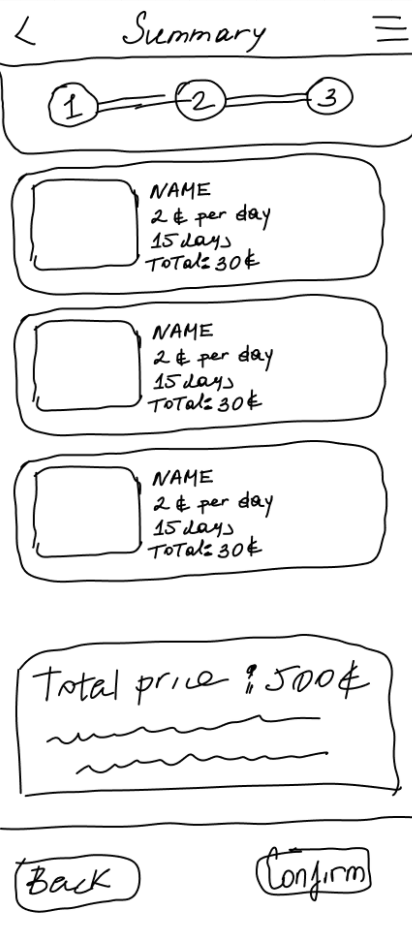 Summary
1 2 3
NAME
2 € per day
15 days
Total: 30€
NAME
2 € per day
15 days
Total: 30€
NAME
2 € per day
15 days
Total: 30€
Total price: 500€
Back
Confirm